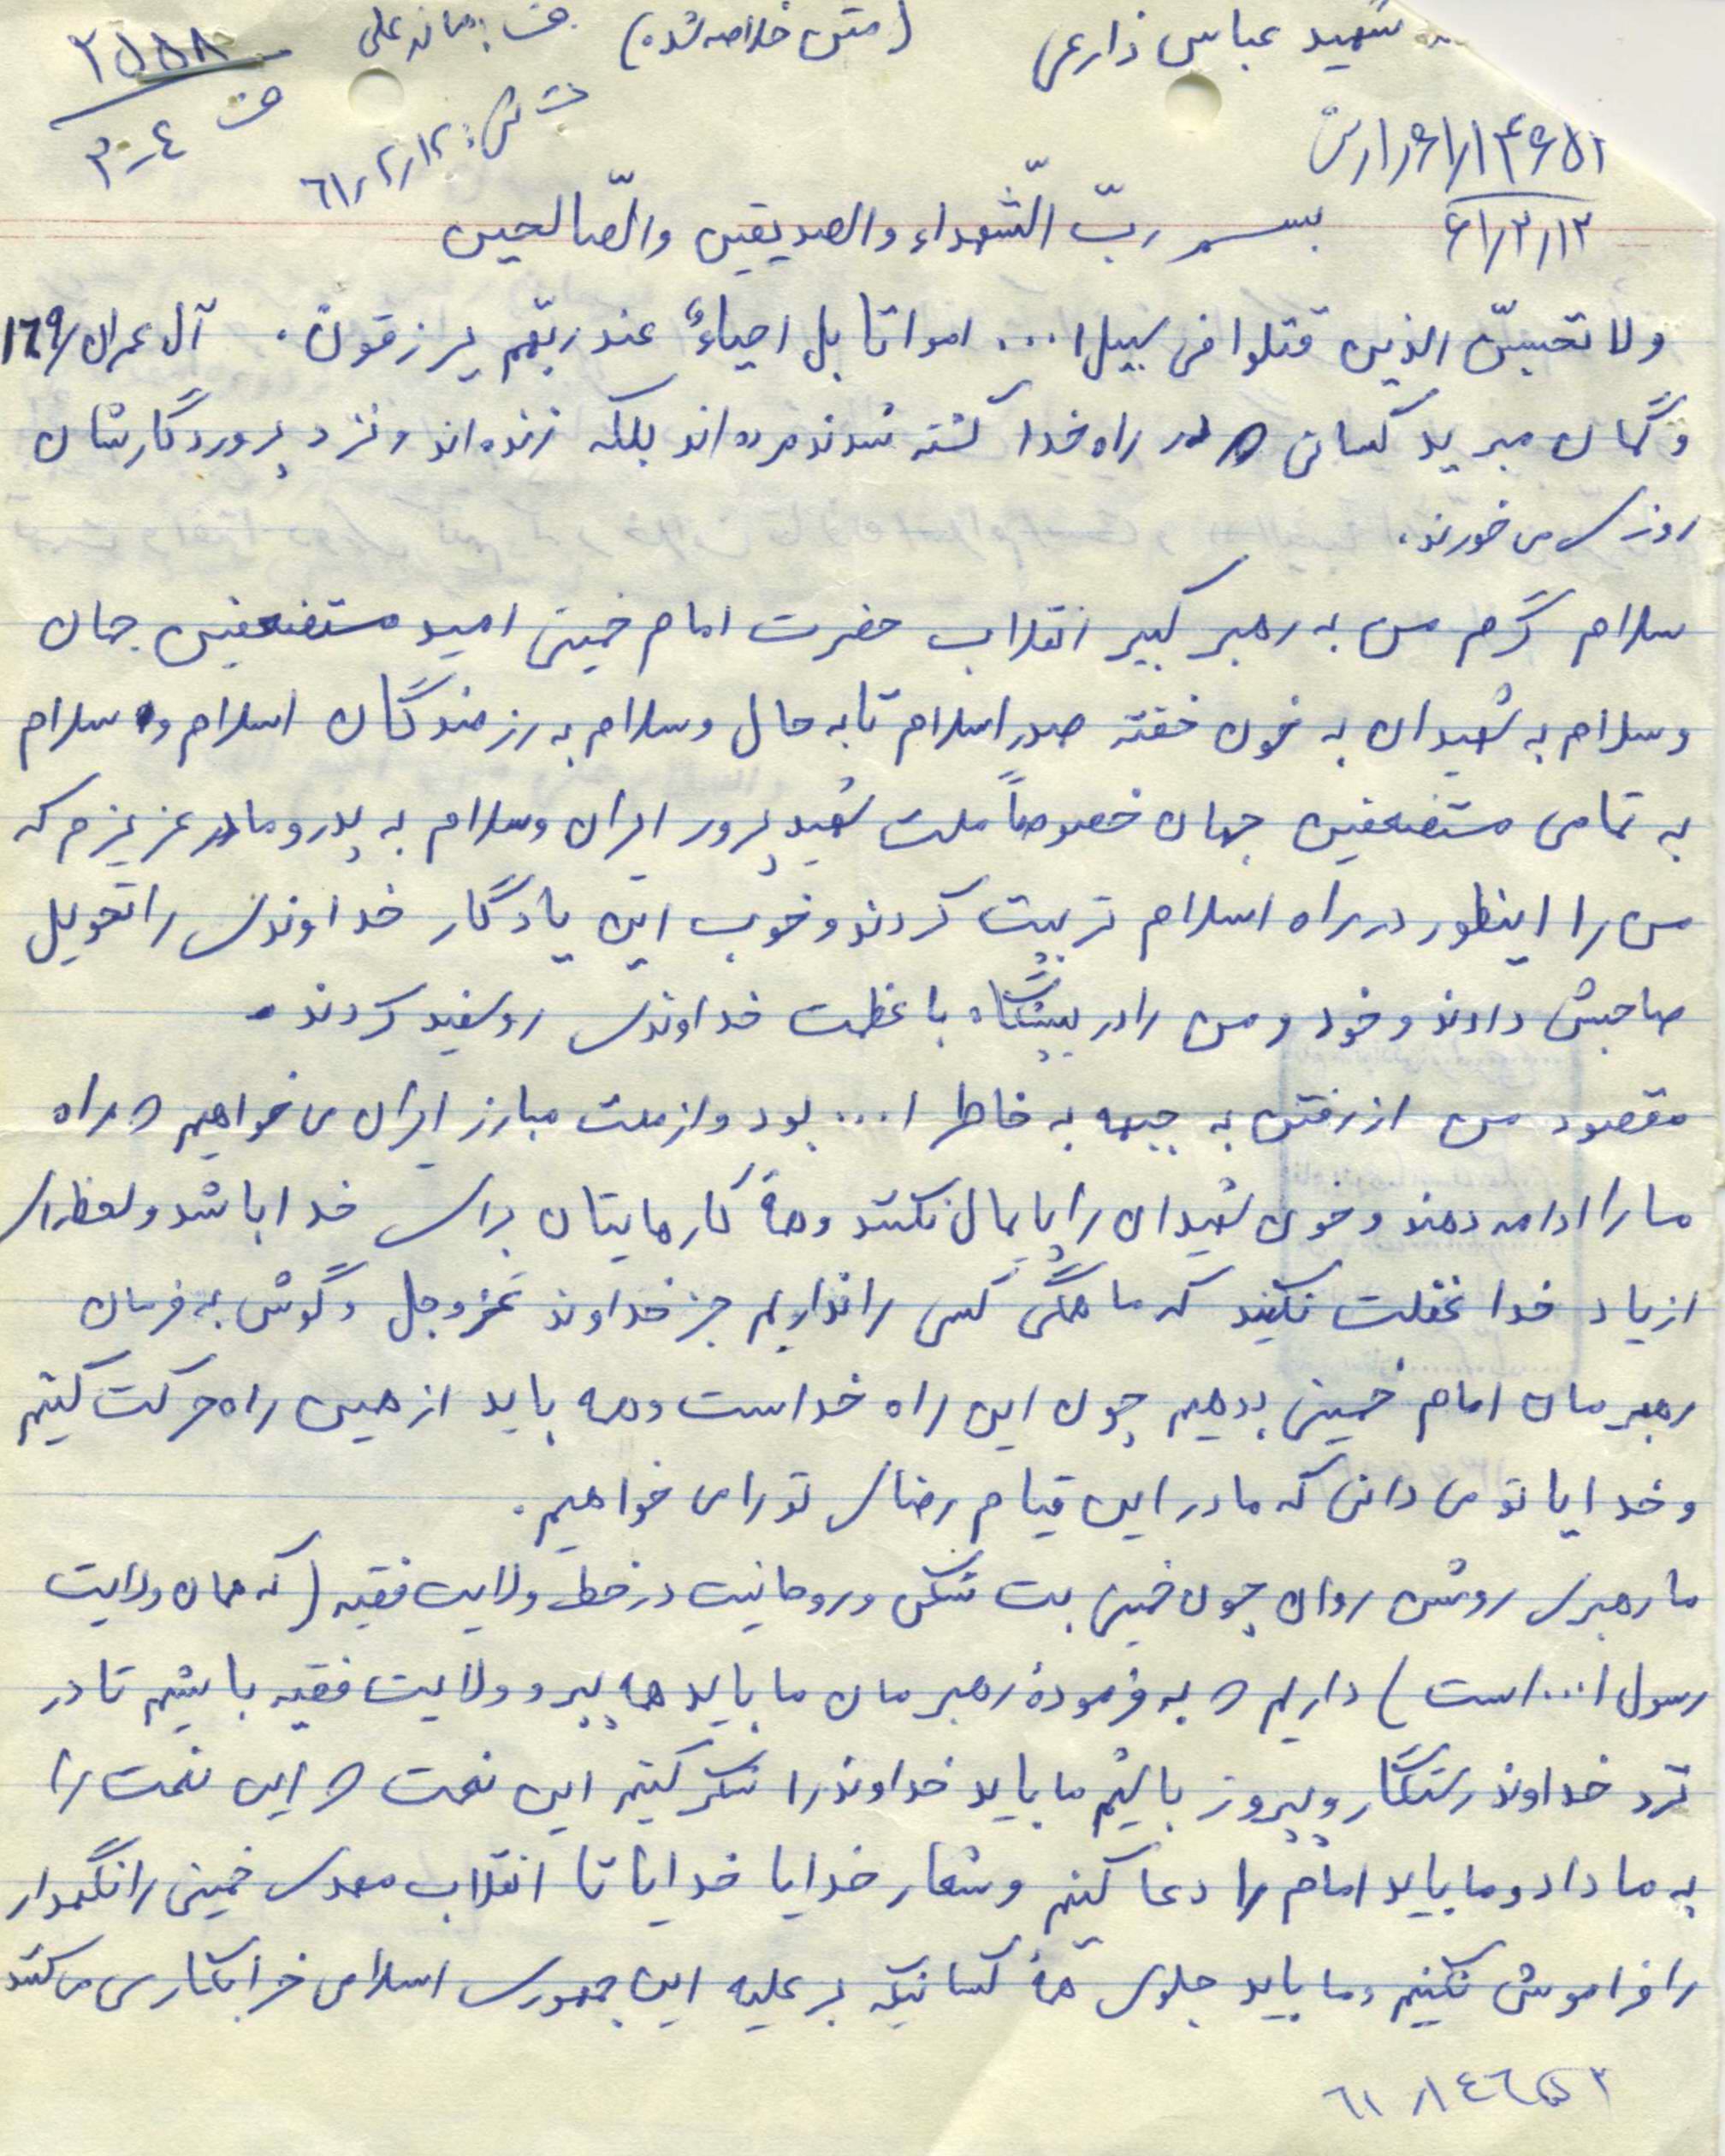 شهید عباس زارعی (متن خلاصه شده) ف: رمضانعلی
۲۵۵۸
ف ۳۰۴
ت ش: ۶۱/۲/۱۲
۶۱/۲/۱۲
بسم ربّ الشّهداء والصدیقین والصّالحین
ولا تحسبنّ الذین قتلوا فی سبیل ا... امواتا بل احیاءٌ عند ربّهم یرزقون. آل عمران/۱۶۹
و گمان مبرید کسانی که در راه خدا کشته شدند مرده اند بلکه زنده اند و نزد پروردگارشان
روزی می خورند.
سلام گرم من به رهبر کبیر انقلاب حضرت امام خمینی امید مستضعفین جهان
وسلام به شهیدان به خون خفته صدر اسلام تا به حال وسلام به رزمندگان اسلام و سلام
به تمامی مستضعفین جهان خصوصاً ملت شهید پرور ایران وسلام به پدر و مادر عزیزم که
من را اینطور در راه اسلام تربیت کردند و خوب این یادگار خداوندی را تحویل
صاحبش دادند و خود و من را در پیشگاه با عظمت خداوندی روسفید کردند.
مقصود من از رفتن به جبهه به خاطر ا... بود و از ملت مبارز ایران می خواهیم که راه
ما را ادامه دهند و خون شهیدان را پایمال نکنند و همهٔ کارهایتان برای خدا باشد و لحظه ای
از یاد خدا غفلت نکنید که ما همگی کسی را نداریم جز خداوند عزوجل و گوش به فرمان
رهبرمان امام خمینی بدهیم چون این راه خداست و همه باید از همین راه حرکت کنیم
و خدایا تو می دانی که ما در این قیام رضای تو را می خواهیم.
ما رهبری روشن روان چون خمینی بت شکن و روحانیت در خط ولایت فقیه (که همان ولایت
رسول ا... است) داریم که به فرمودهٔ رهبرمان ما باید همه پیرو ولایت فقیه باشیم تا در
نزد خداوند رستگار و پیروز باشیم ما باید خداوند را شکر کنیم این نعمت که این نعمت را
به ما داد و ما باید امام را دعا کنیم و شعار خدایا خدایا تا انقلاب مهدی خمینی را نگهدار
را فراموش نکنیم و ما باید جلوی همهٔ کسانیکه بر علیه این جمهوری اسلامی خرابکاری می کنند